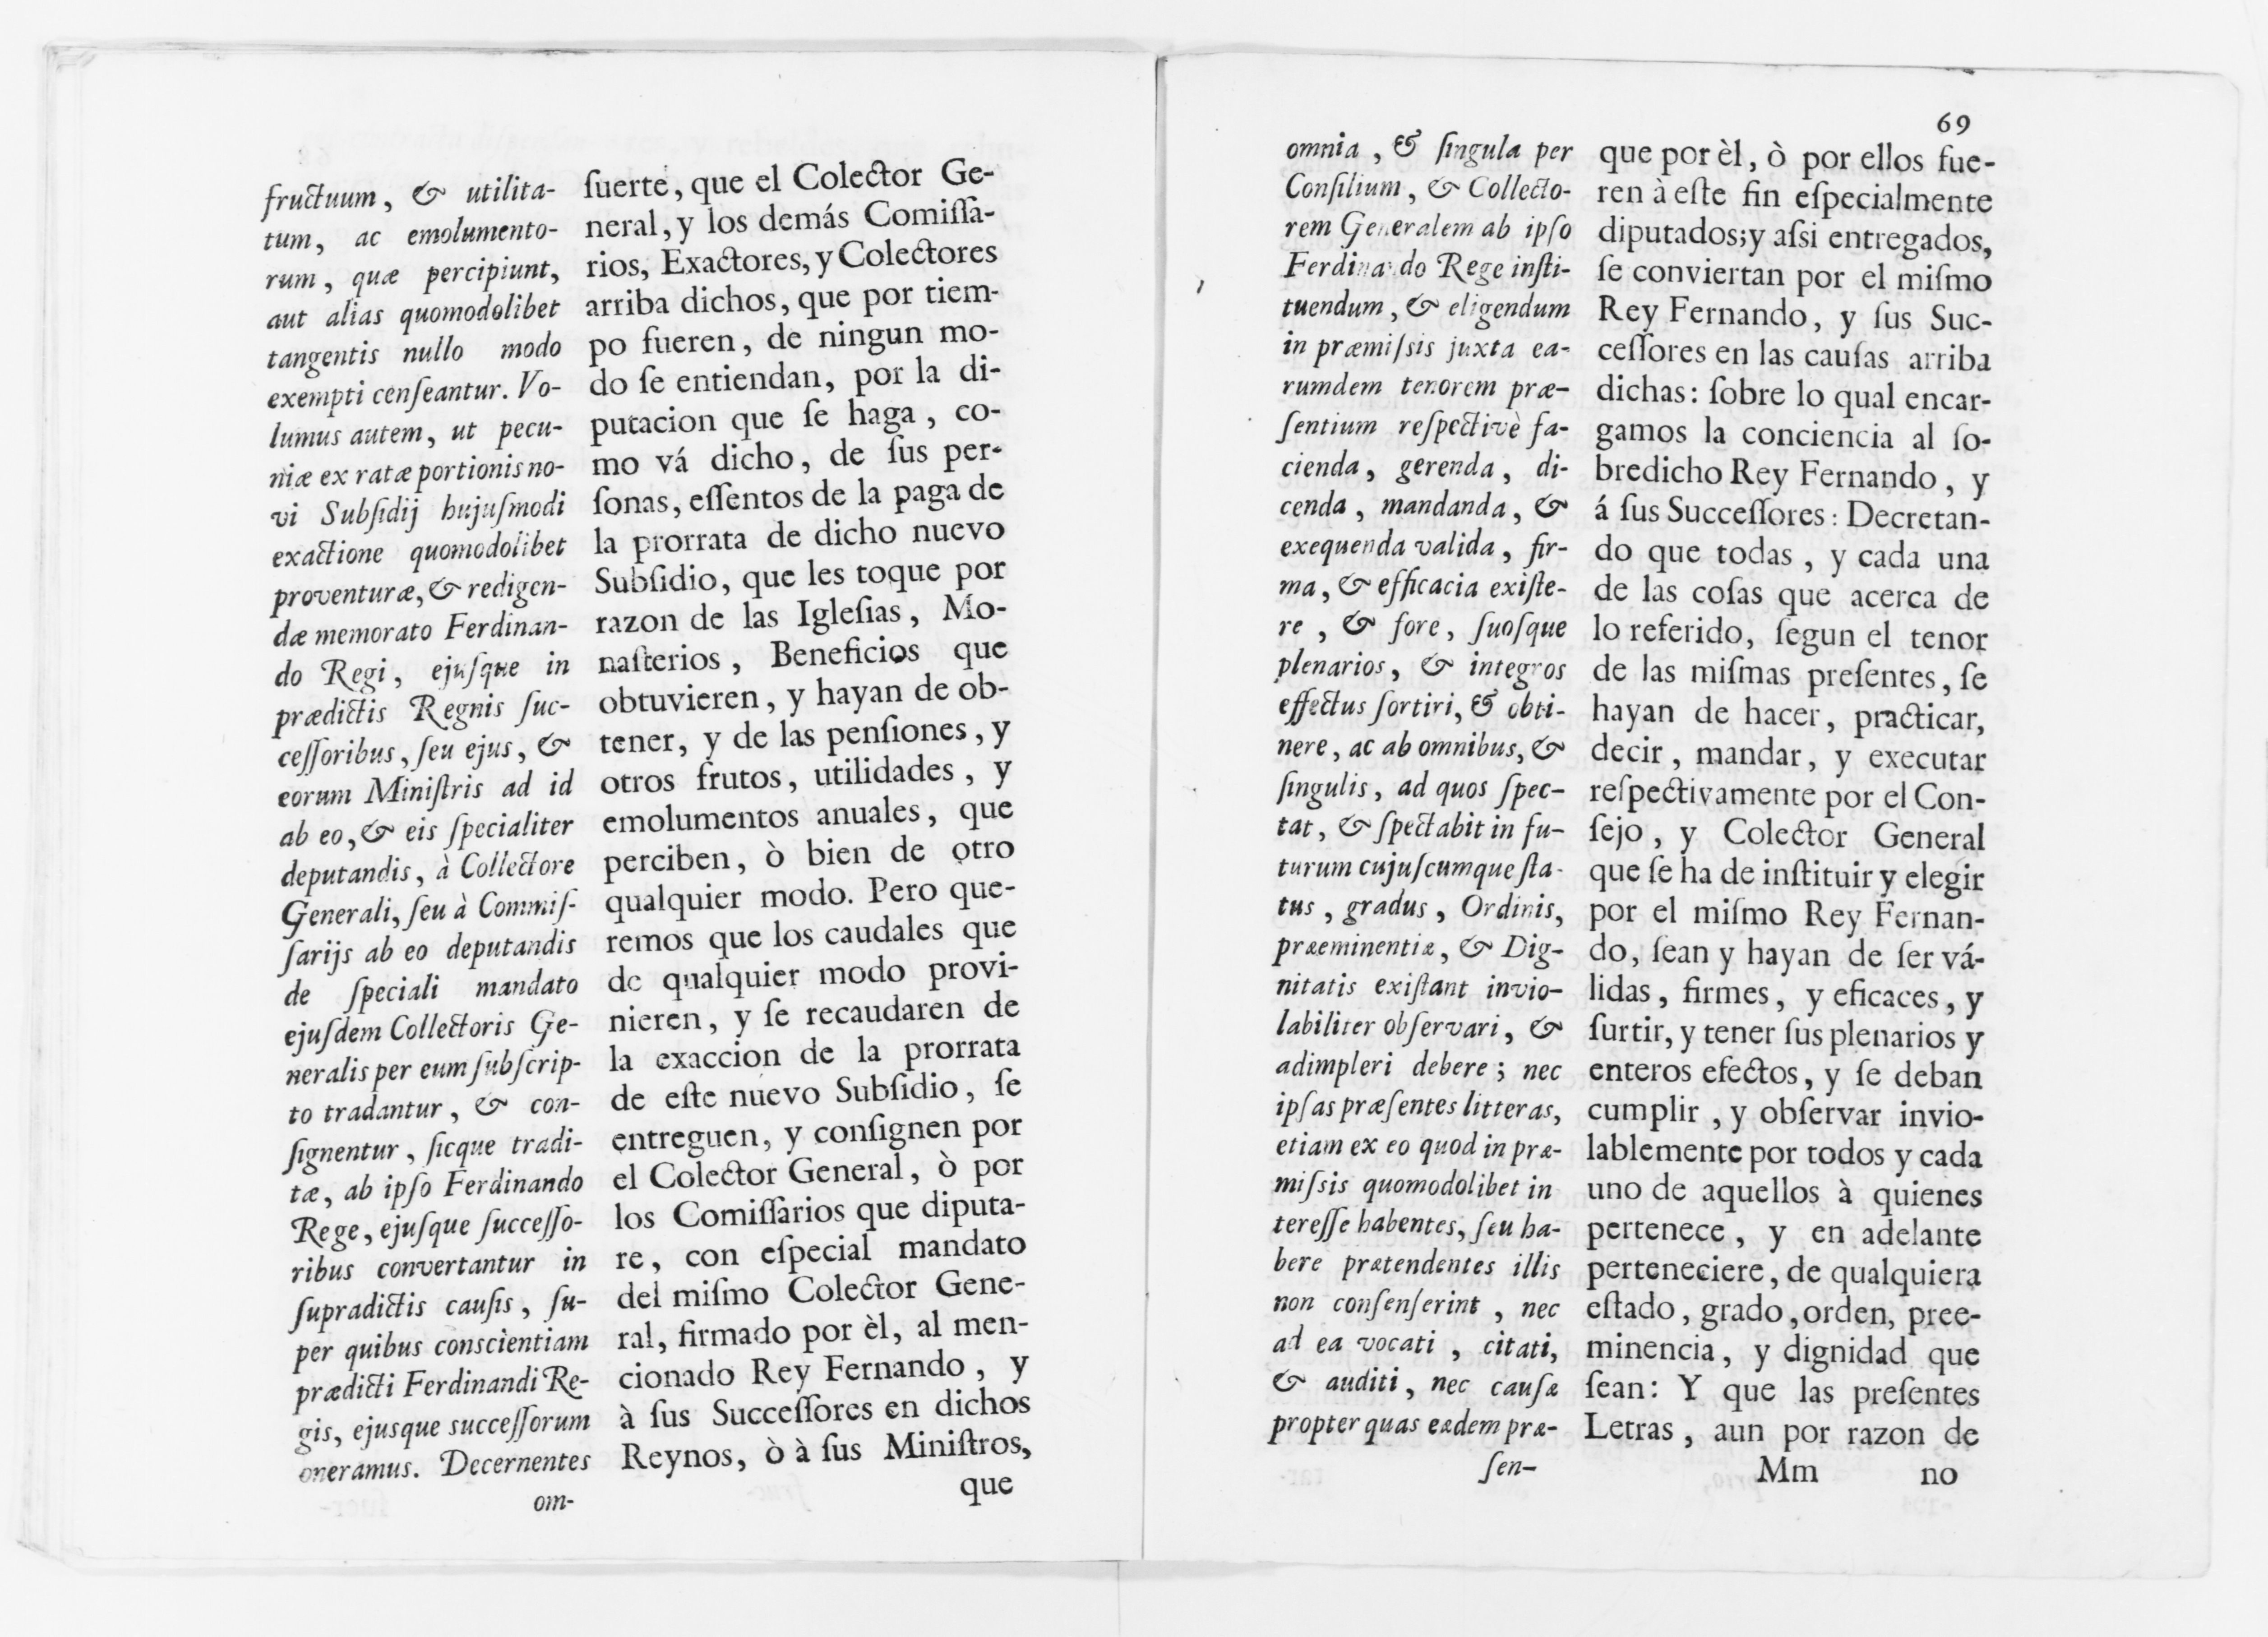 fructuum, & utilita-
tum, ac emolumento-
rum, quæ percipiunt,
aut alias quomodolibet
tangentis nullo modo
exempti cenſeantur. Vo-
lumus autem, ut pecu-
niæ ex ratæ portionis no-
vi Subſidij hujuſmodi
exactione quomodolibet
proventuræ, & redigen-
dæ memorato Ferdinan-
do Regi, ejuſque in
prædictis Regnis ſuc-
ceſſoribus, ſeu ejus, &
eorum Miniſtris ad id
ab eo, & eis ſpecialiter
deputandis, à Collectore
Generali, ſeu à Commiſ-
ſarijs ab eo deputandis
de ſpeciali mandato
ejuſdem Collectoris Ge-
neralis per eum ſubſcrip-
to tradantur, & con-
ſignentur, ſicque tradi-
tæ, ab ipſo Ferdinando
Rege, ejuſque ſucceſſo-
ribus convertantur in
ſupradictis cauſis, ſu-
per quibus conscientiam
prædicti Ferdinandi Re-
gis, ejusque ſucceſſorum
oneramus. Decernentes
om-
ſuerte, que el Colector Ge-
neral, y los demás Comiſſa-
rios, Exactores, y Colectores
arriba dichos, que por tiem-
po fueren, de ningun mo-
do ſe entiendan, por la di-
putacion que ſe haga, co-
mo vá dicho, de ſus per-
ſonas, eſſentos de la paga de
la prorrata de dicho nuevo
Subſidio, que les toque por
razon de las Igleſias, Mo-
naſterios, Beneficios que
obtuvieren, y hayan de ob-
tener, y de las penſiones, y
otros frutos, utilidades, y
emolumentos anuales, que
perciben, ò bien de otro
qualquier modo. Pero que-
remos que los caudales que
de qualquier modo provi-
nieren, y ſe recaudaren de
la exaccion de la prorrata
de eſte nuevo Subſidio, ſe
entreguen, y conſignen por
el Colector General, ò por
los Comiſſarios que diputa-
re, con eſpecial mandato
del miſmo Colector Gene-
ral, firmado por èl, al men-
cionado Rey Fernando, y
à ſus Succeſſores en dichos
Reynos, ò à ſus Miniſtros,
que
69
omnia, & ſingula per
Conſilium, & Collecto-
rem Generalem ab ipſo
Ferdinando Rege inſti-
tuendum, & eligendum
in præmiſsis juxta ea-
rumdem tenorem præ-
ſentium reſpectivè fa-
cienda, gerenda, di-
cenda, mandanda, &
exequenda valida, fir-
ma, & efficacia exiſte-
re, & fore, ſuoſque
plenarios, & integros
effectus ſortiri, & obti-
nere, ac ab omnibus, &
ſingulis, ad quos ſpec-
tat, & ſpectabit in fu-
turum cujuſcumque ſta-
tus, gradus, Ordinis,
præeminentiæ, & Dig-
nitatis exiſtant invio-
labiliter obſervari, &
adimpleri debere; nec
ipſas præſentes litteras,
etiam ex eo quod in præ-
miſsis quomodolibet in
tereſſe habentes, ſeu ha-
bere prætendentes illis
non conſenſerint, nec
ad ea vocati, citati,
& auditi, nec cauſæ
propter quas eædem præ-
ſen-
que por èl, ò por ellos fue-
ren à eſte fin eſpecialmente
diputados; y aſsi entregados,
ſe conviertan por el miſmo
Rey Fernando, y ſus Suc-
ceſſores en las cauſas arriba
dichas: ſobre lo qual encar-
gamos la conciencia al ſo-
bredicho Rey Fernando, y
á ſus Succeſſores: Decretan-
do que todas, y cada una
de las coſas que acerca de
lo referido, ſegun el tenor
de las miſmas preſentes, ſe
hayan de hacer, practicar,
decir, mandar, y executar
reſpectivamente por el Con-
ſejo, y Colector General
que ſe ha de inſtituir y elegir
por el miſmo Rey Fernan-
do, ſean y hayan de ſer vá-
lidas, firmes, y eficaces, y
ſurtir, y tener ſus plenarios y
enteros efectos, y ſe deban
cumplir, y obſervar invio-
lablemente por todos y cada
uno de aquellos à quienes
pertenece, y en adelante
perteneciere, de qualquiera
eſtado, grado, orden, pree-
minencia, y dignidad que
ſean: Y que las preſentes
Letras, aun por razon de
Mm no